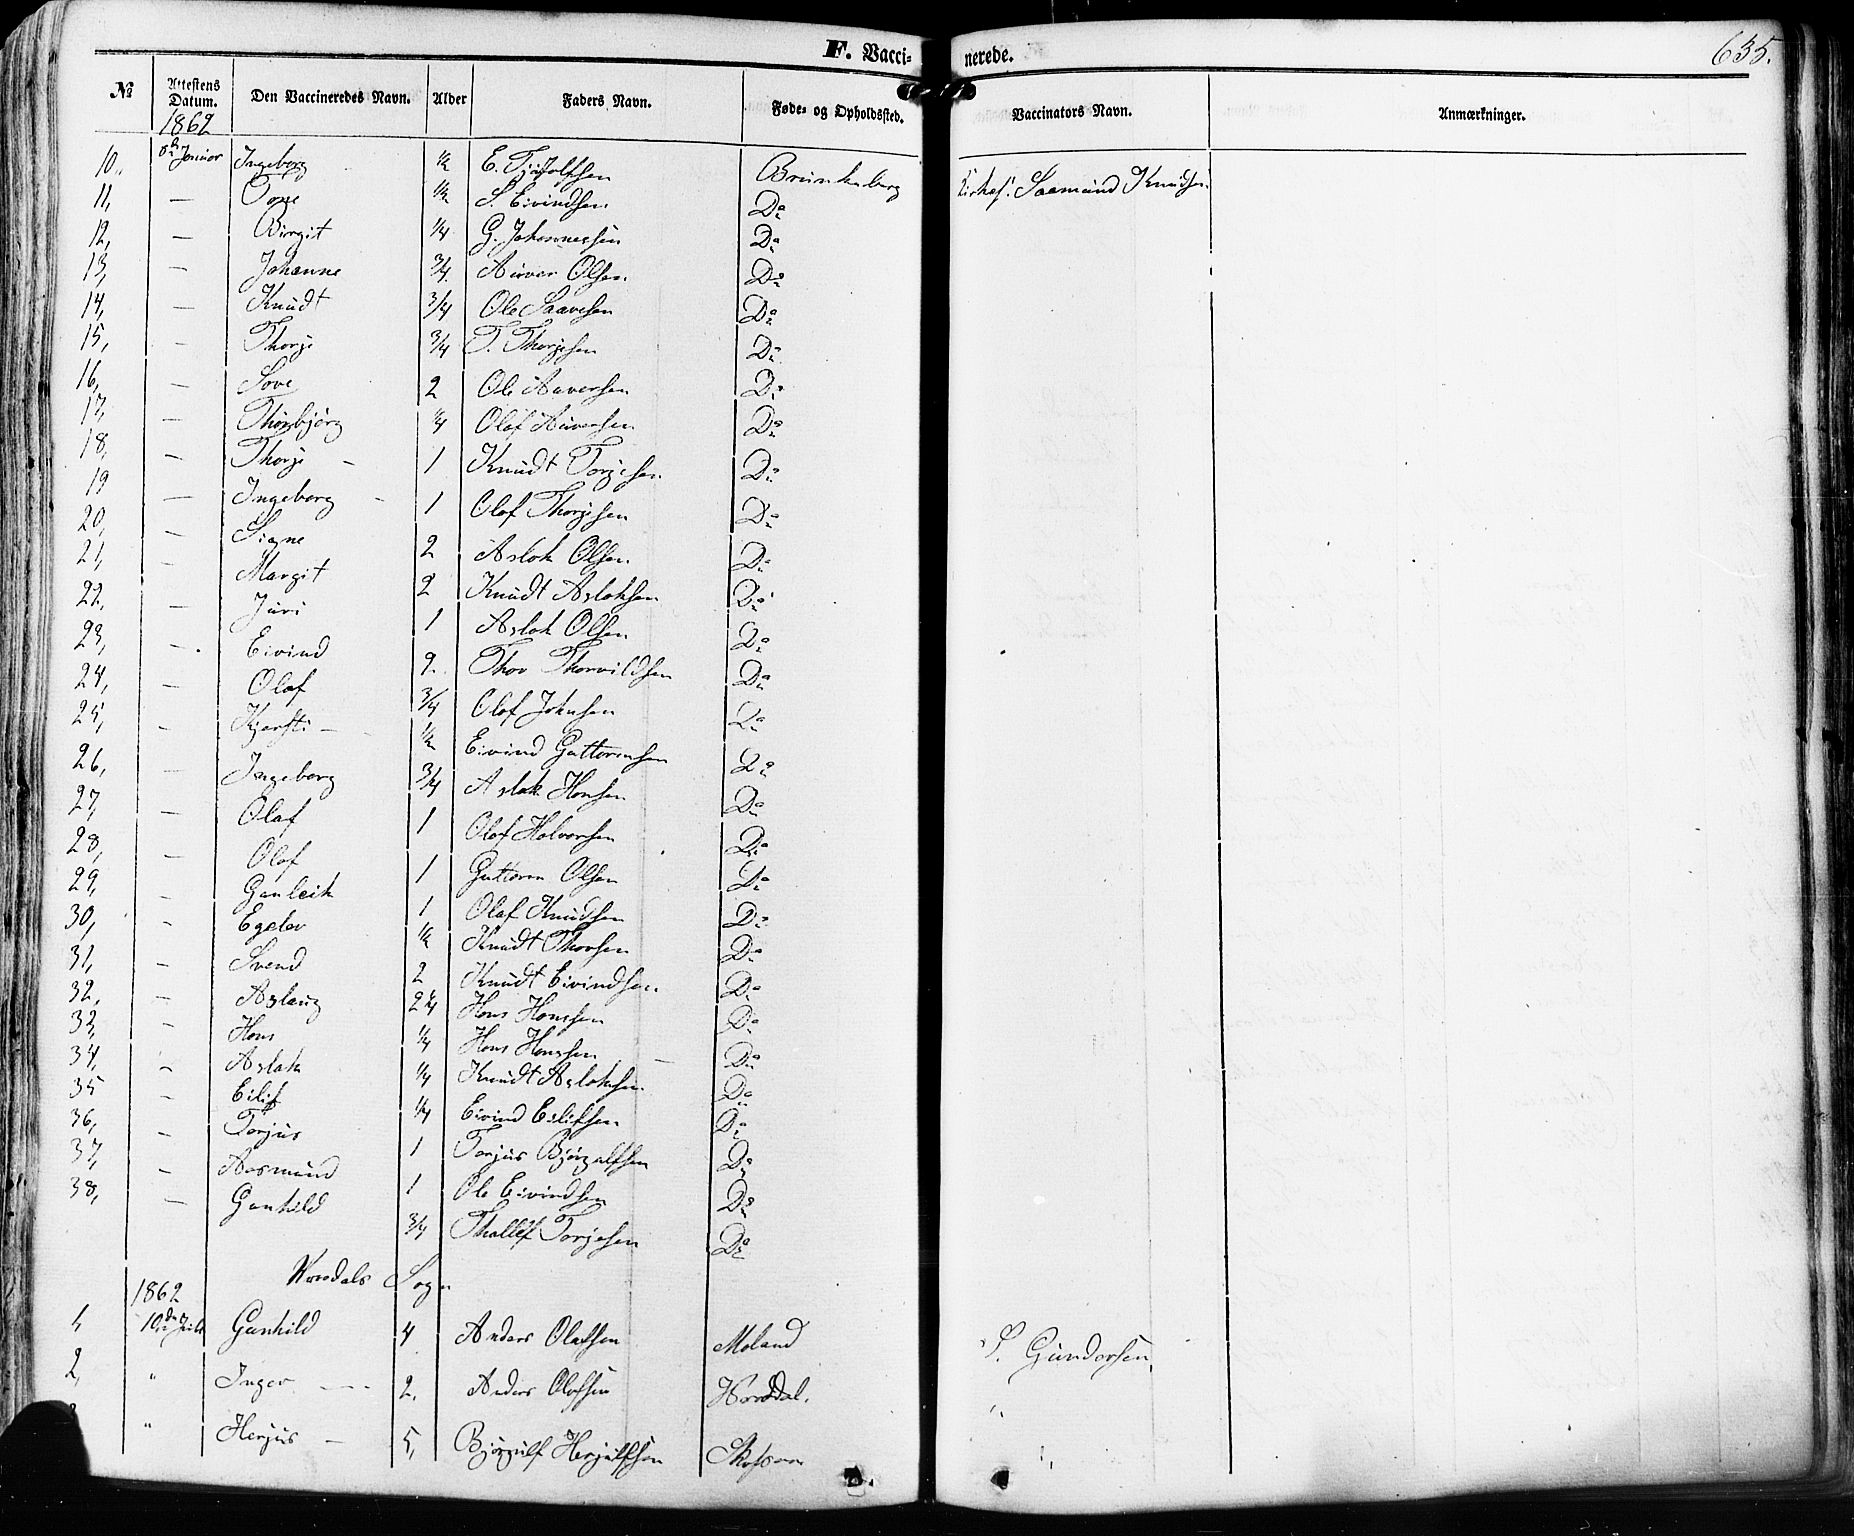 F. Vacci-
nerede.
635.
№ Attestens Datum. Den Vaccineredes Navn. Alder Faders Navn. Føde- og Opholdssted. Vaccinators Navn. Anmærkninger.
1862
10, Januar Ingeborg 1/2 E. Brunkeberg Saamund Knudsen
11, — Tone 1/2 S. Eivindsen Do
12, — Birgit 1/4 G. Johannessen Do
13, — Johanne 3/4 Olsen Do
14, — Knudt 3/4 Ole Saavesen Do
15, — Thorje 3/4 T. Thorjesen Do
16, — Sove 2 Ole Aaversen Do
17, — Thorbjørg 1/4 Olaf Do
18, — Thorje — 1 Knudt Torjesen Do
19 — Ingeborg - 1 Olaf Thorjesen Do
20, — Signe 2 Aslak Olsen Do
21, — Margit 2 Knudt Aslaksen Do
22, — Juri 1 Aslak Olsen Do
23, — Eivind 2. Thov Thorvildsen Do
24, — Olaf 3/4 Olaf Johnsen Do
25, — Kjersti — 1/2 Eivind Guttormsen Do
26, — Ingeborg 3/4 Aslak Hansen Do
27, — Olaf 1 Olaf Halvorsen Do
28, — Olaf 1 Guttorm Olsen Do
29, — Gunleik 1 Olaf Knudsen Do
30, — Egelev 1/2 Knudt Thovsen Do
31, — Svend 2 Knudt Eivindsen Do
32, — Aslaug 2 1/4 Hans Hanssen Do
33, — Hans 1/4 Hans Hanssen Do
34, — Aslak 1/4 Knudt Aslaksen Do
35 — Eilif 1/4 Eivind Eilifsen Do
36, — Torjus 1 Torjus Bjørgulfsen Do
37, — Aasmund 1 Ole Eivindsen Do
38, — Gunhild 3/4 Thallef Torjesen Do
Sogn
1862
1, 10de Gunhild 4 Anders Olafsen Moland S. Gundersen,
2, " Inger — 2. Anders Olafsen "
" Herjus — 5, Bjørgulf Herjulfsen "